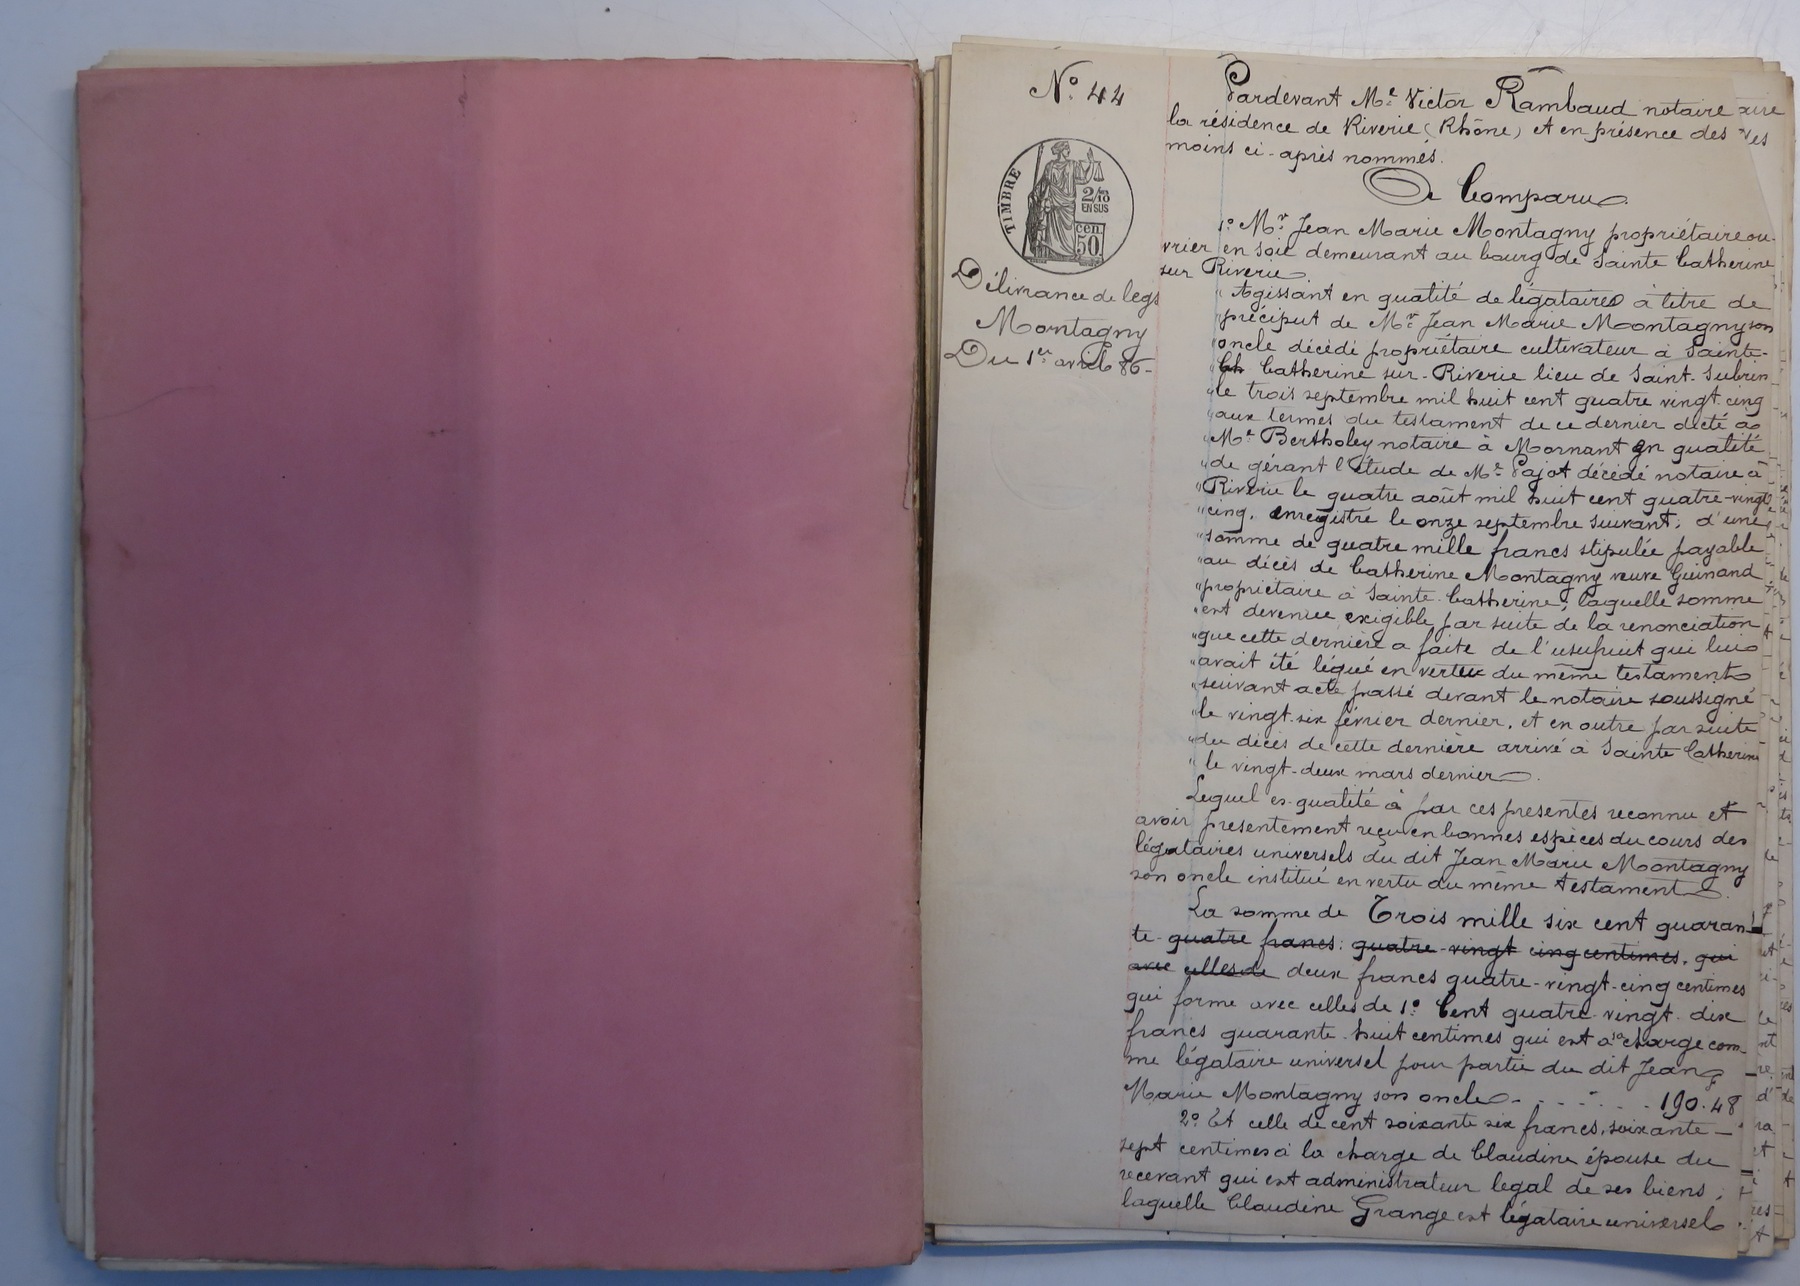 N° 44
TIMBRE
2/10
EN SUS
50 cen.
Délivrance de legs
Montagny
Du 1er avril 86 -
Pardevant Me Victor Rambaud notaire
la résidence de Riverie (Rhône) et en présence des
moins ci-après nommés.
A Comparu
1° Mr Jean Marie Montagny propriétaire ou-
vrier en soie demeurant au bourg de Sainte Catherine
sur Riverie
" Agissant en qualité de légataire à titre de
" préciput de Mr Jean Marie Montagny son
" oncle décédé propriétaire cultivateur à Sainte-
" Ch Catherine sur-Riverie lieu de Saint-Subrin
" le trois septembre mil huit cent quatre vingt cinq
" aux termes du testament de ce dernier dicté à
" Me Bertholey notaire à Mornant en qualité
" de gérant l'étude de Me Pajot décédé notaire à
" Riverie le quatre août mil huit cent quatre-vingt
" cinq, enregistré le onze septembre suivant, d'une
" somme de quatre mille francs stipulée payable
" au décès de Catherine Montagny veuve Guinand
" propriétaire à Sainte-Catherine, laquelle somme
" est devenue exigible par suite de la renonciation
" que cette dernière a faite de l'usufruit qui lui
" avait été légué en vertu du même testament
" suivant acte passé devant le notaire soussigné
" le vingt-six février dernier, et en outre par suite
" du décès de cette dernière arrivé à Sainte Catherine
" le vingt-deux mars dernier.
Lequel es-qualité à par ces présentes reconnu et
avoir présentement reçu en bonnes espèces du cours des
légataires universels du dit Jean Marie Montagny
son oncle institué en vertu du même testament.
La somme de Trois mille six cent quaran-
te-quatre francs: quatre-vingt cinq centimes, qui
avec celles de deux francs quatre-vingt-cinq centimes
qui forme avec celles de 1° Cent quatre-vingt-dix
francs quarante-huit centimes qui est à sa charge com-
me légataire universel pour partie du dit Jean
Marie Montagny son oncle - - - - - 190.48
2° Et celle de cent soixante six francs, soixante-
sept centimes à la charge de Claudine épouse du
recevant qui est administrateur légal de ses biens,
laquelle Claudine Grange est légataire universel